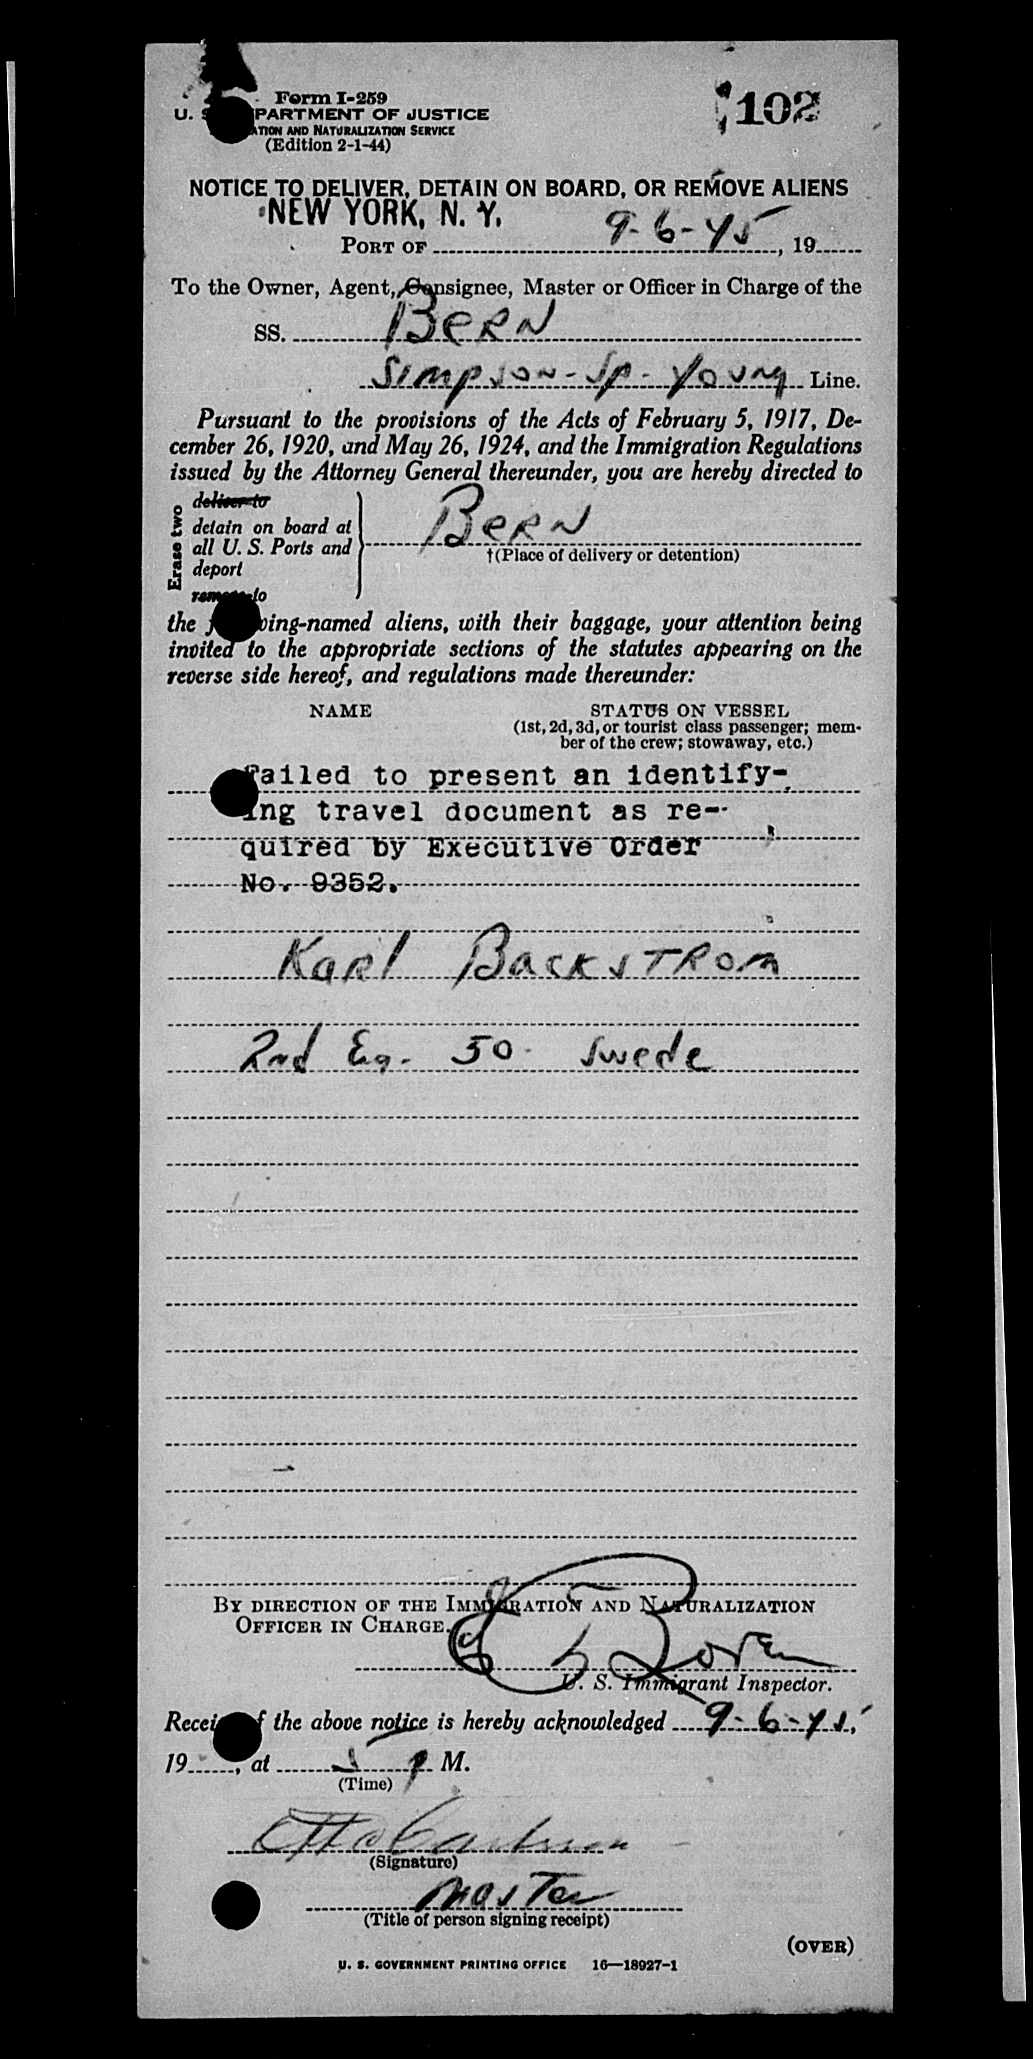 Form I-259
102
U. S. DEPARTMENT OF JUSTICE
IMMIGRATION AND NATURALIZATION SERVICE
(Edition 2-1-44)
NOTICE TO DELIVER, DETAIN ON BOARD, OR REMOVE ALIENS
NEW YORK, N. Y.
PORT OF 9-6-45, 19
To the Owner, Agent, Consignee, Master or Officer in Charge of the
SS. BERN
Simpson-Sp-Young Line.
Pursuant to the provisions of the Acts of February 5, 1917, De-
cember 26, 1920, and May 26, 1924, and the Immigration Regulations
issued by the Attorney General thereunder, you are hereby directed to
Erase two
deliver to
detain on board at
all U. S. Ports and
deport
remove to
BERN
†(Place of delivery or detention)
the following-named aliens, with their baggage, your attention being
invited to the appropriate sections of the statutes appearing on the
reverse side hereof, and regulations made thereunder:
NAME
STATUS ON VESSEL
(1st, 2d, 3d, or tourist class passenger; mem-
ber of the crew; stowaway, etc.)
Failed to present an identify-
ing travel document as re-
quired by Executive Order
No. 9352.
Karl BACKSTROM
2nd Eg. 50. Swede
BY DIRECTION OF THE IMMIGRATION AND NATURALIZATION
OFFICER IN CHARGE.
U. S. Immigrant Inspector.
Receipt of the above notice is hereby acknowledged 9-6-45,
19, at 5 P M.
(Time)
Otto
(Signature)
Master
(Title of person signing receipt)
(OVER)
U. S. GOVERNMENT PRINTING OFFICE 16—18927-1